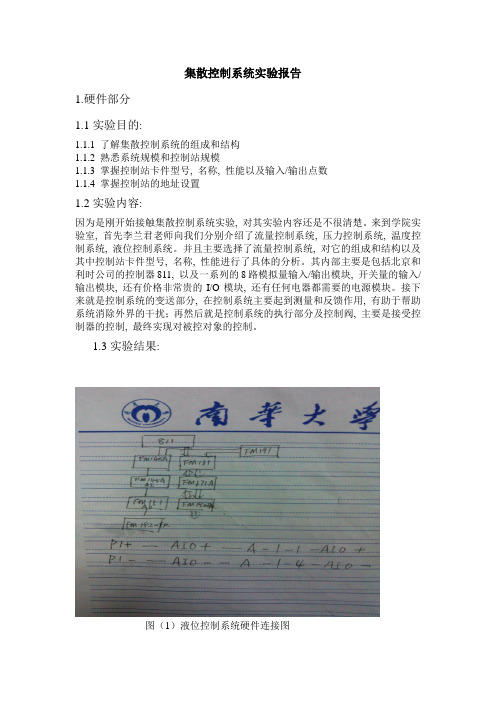 集散控制系统实验报告
1.硬件部分
1.1实验目的:
1.1.1 了解集散控制系统的组成和结构
1.1.2 熟悉系统规模和控制站规模
1.1.3 掌握控制站卡件型号, 名称, 性能以及输入/输出点数
1.1.4 掌握控制站的地址设置
1.2实验内容:
因为是刚开始接触集散控制系统实验, 对其实验内容还是不很清楚。来到学院实
验室, 首先李兰君老师向我们分别介绍了流量控制系统, 压力控制系统, 温度控
制系统, 液位控制系统。并且主要选择了流量控制系统, 对它的组成和结构以及
其中控制站卡件型号, 名称, 性能进行了具体的分析。其内部主要是包括北京和
利时公司的控制器811, 以及一系列的8路模拟量输入/输出模块, 开关量的输入/
输出模块, 还有价格非常贵的I/O模块, 还有任何电器都需要的电源模块。接下
来就是控制系统的变送部分, 在控制系统主要起到测量和反馈作用, 有助于帮助
系统消除外界的干扰；再然后就是控制系统的执行部分及控制阀, 主要是接受控
制器的控制, 最终实现对被控对象的控制。
1.3实验结果:
南華大學
811
FM148A FM151 FM191
FM171A
PI+ — AIO+ — A-1-1-AIO+
PI- — AIO- — A-1-4-AIO-
图（1）液位控制系统硬件连接图